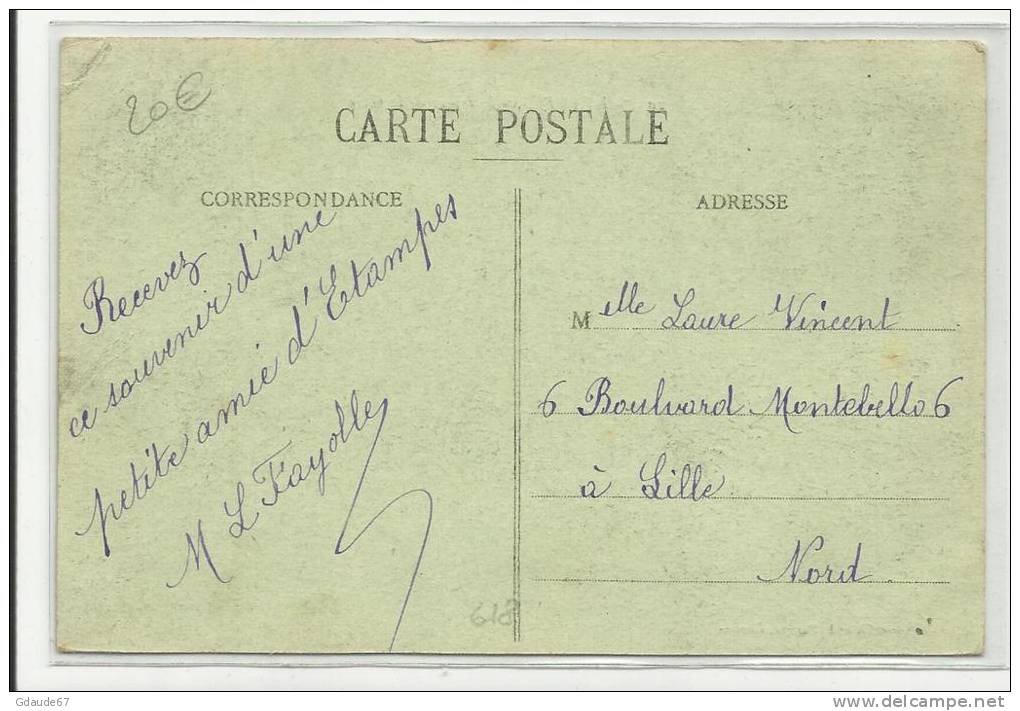 20€
CARTE POSTALE
CORRESPONDANCE
Recevez
ce souvenir d'une
petite amie d'Etampes
M L Fayolle
ADRESSE
Melle Laure Vincent
6 Boulvard Montebello 6
à Lille
Nord
618
Gdaude67
www.delcampe.net